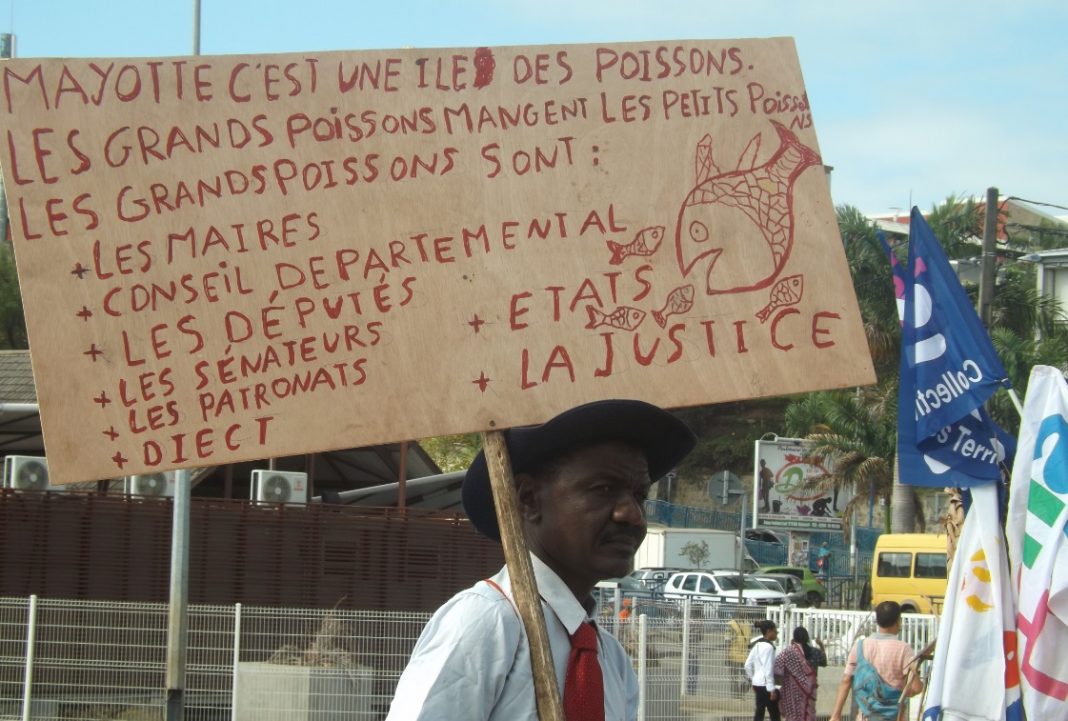 MAYOTTE C'EST UNE ILE DES POISSONS.
LES GRANDS POISSONS MANGENT LES PETITS POISSO
NS
LES GRANDS POISSONS SONT :
+ LES MAIRES
+ CONSEIL DEPARTEMENTAL
+ LES DÉPUTÉS
+ LES SÉNATEURS
+ LES PATRONATS
+ DIECT
+ ETATS
+ LA JUSTICE
Collecti
s Terri